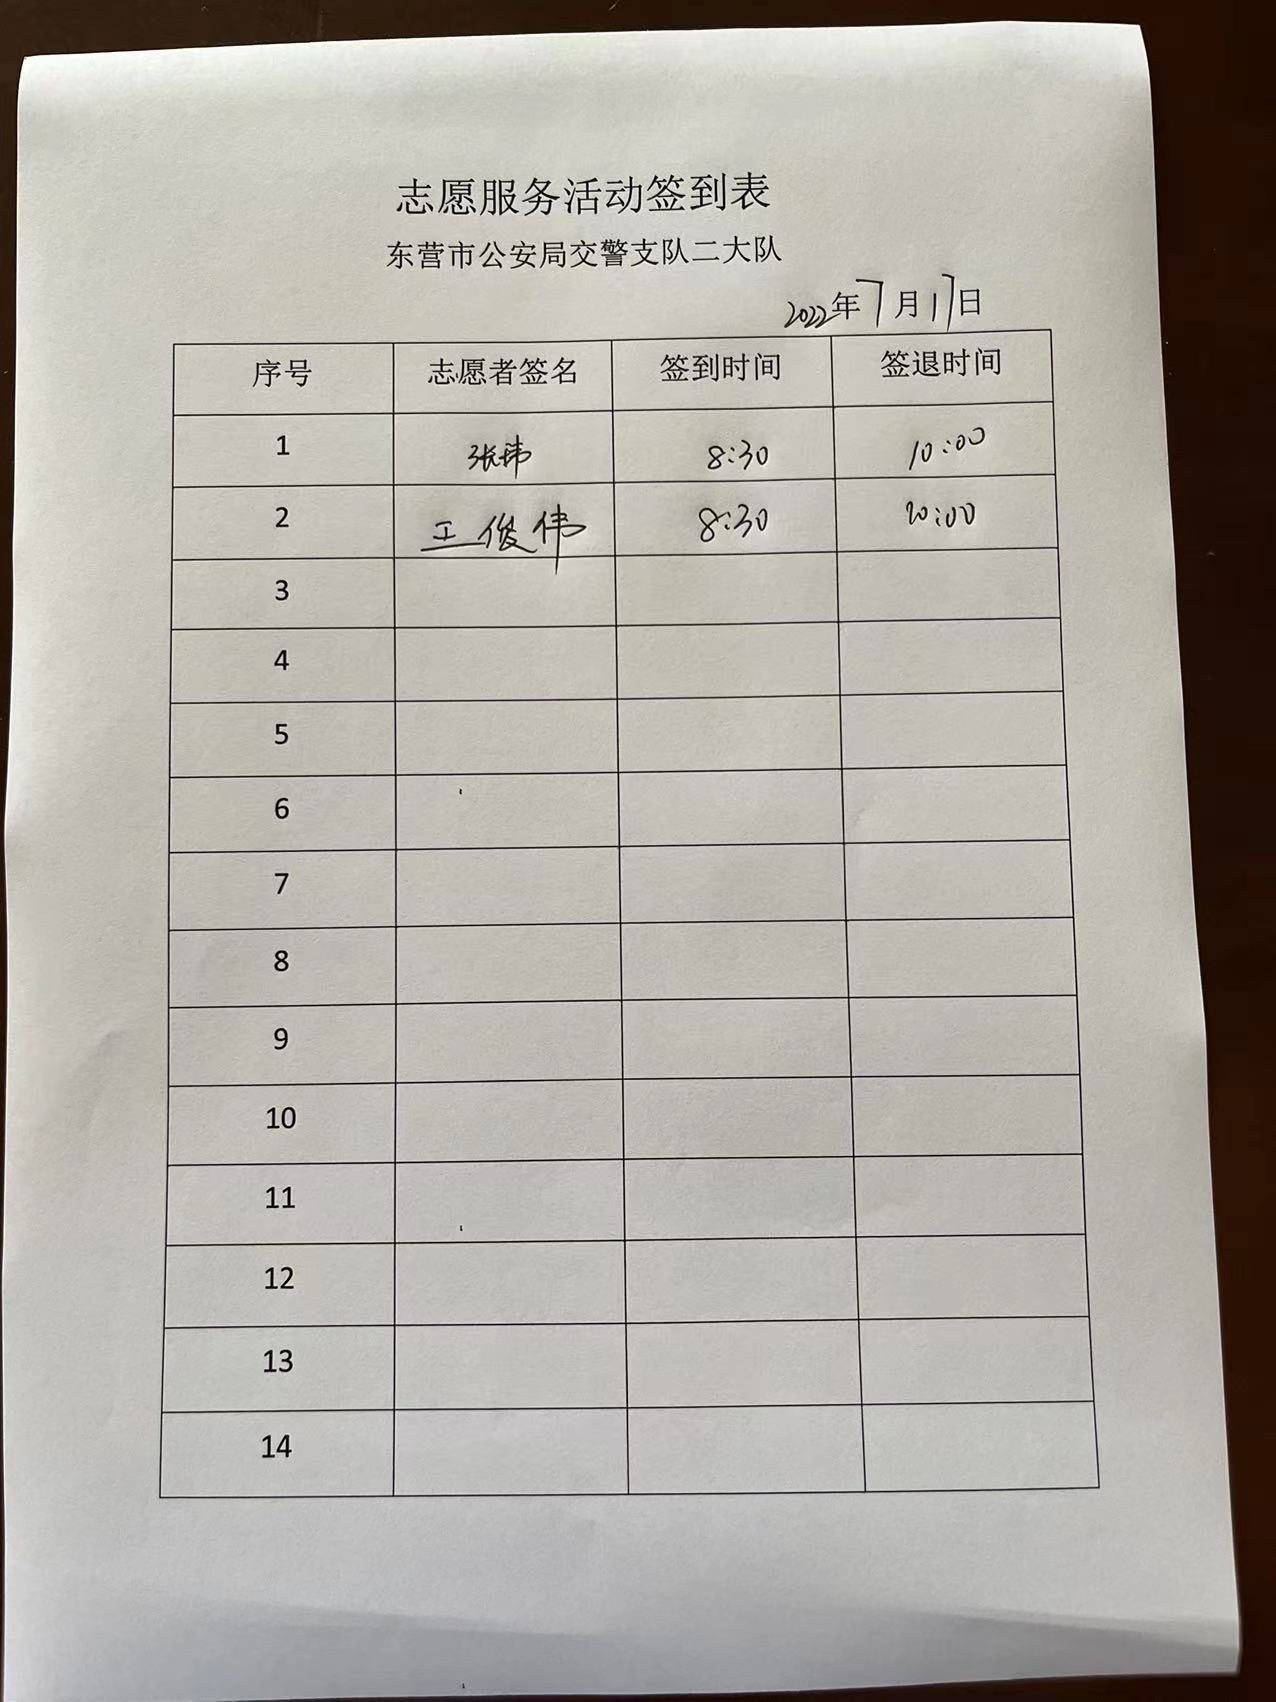 志愿服务活动签到表
东营市公安局交警支队二大队
2022年7月17日
序号 志愿者签名 签到时间 签退时间
1 张玮 8:30 10:00
2 王俊伟 8:30 10:00
3
4
5
6
7
8
9
10
11
12
13
14